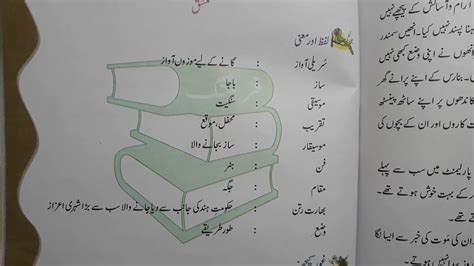 مشق
لفظ اور معنی
سُریلی آواز : گانے کے لیے موزوں آواز
ساز : باجا
موسیقی : سنگیت
تقریب : محفل، موقع
موسیقار : ساز بجانے والا
فن : ہنر
مقام : جگہ
بھارت رتن : حکومتِ ہند کی جانب سے دیا جانے والا سب سے بڑا شہری اعزاز
وضع : طور طریقے
غور کیجیے
آرام و آسائش کے پیچھے نہیں
پسند نہیں کیا۔ انھیں سمندر
نھوں نے اپنی وضع کبھی نہیں
بنارس کے اپنے پرانے گھر
کاندھوں پر اپنے ساتھ پینسٹھ
کاروں اور ان کے بچوں کی
پارلیمنٹ میں سب سے پہلے
بہت خوش ہوتے تھے۔
ان کی موت کی خبر سے ایسا لگا
ہوتے ہیں۔